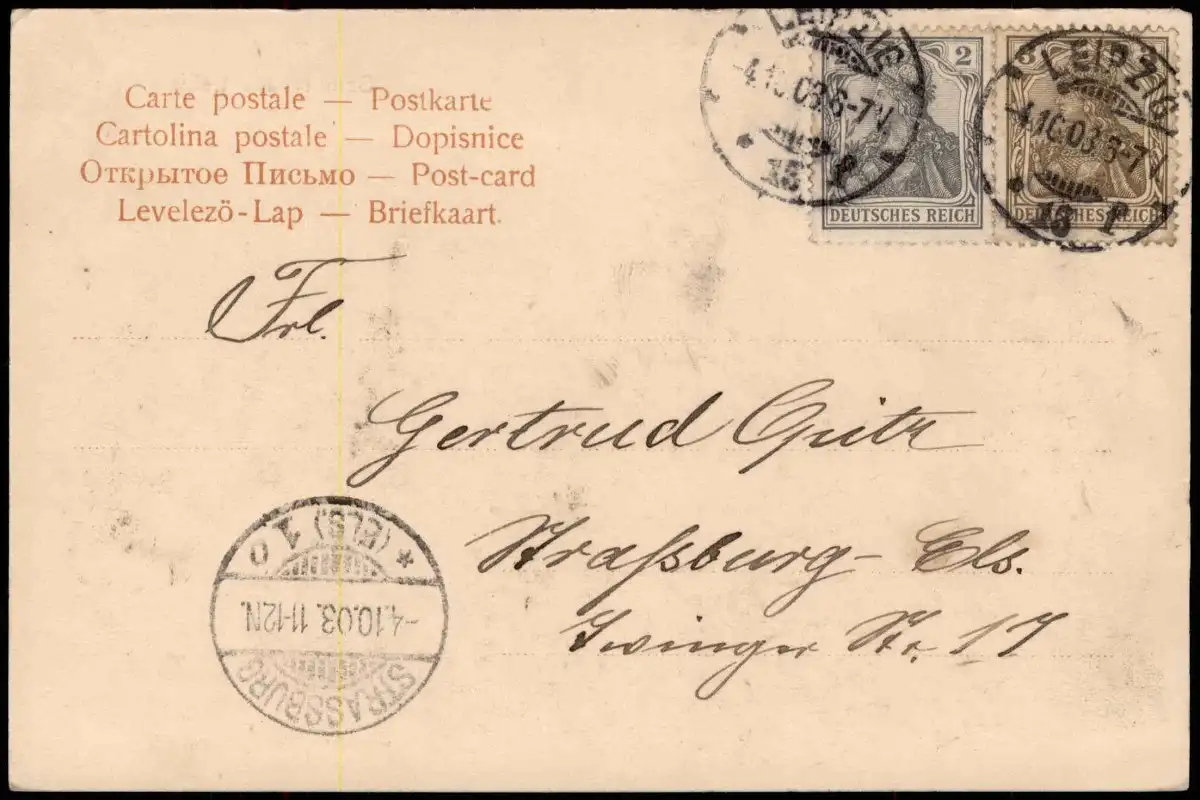 Carte postale — Postkarte
Cartolina postale — Dopisnice
Открытое Письмо — Post-card
Levelező-Lap — Briefkaart.
LEIPZIG
-4.10.03.6-7V.
13
2
DEUTSCHES REICH
3
DEUTSCHES REICH
LEIPZIG
-4.10.03.6-7V
13
Frl.
Gertrud Opitz
Straßburg- Els.
Zwinger Str. 17
STRASSBURG
-4.10.03. 11-12N.
* (ELS.) 1 o